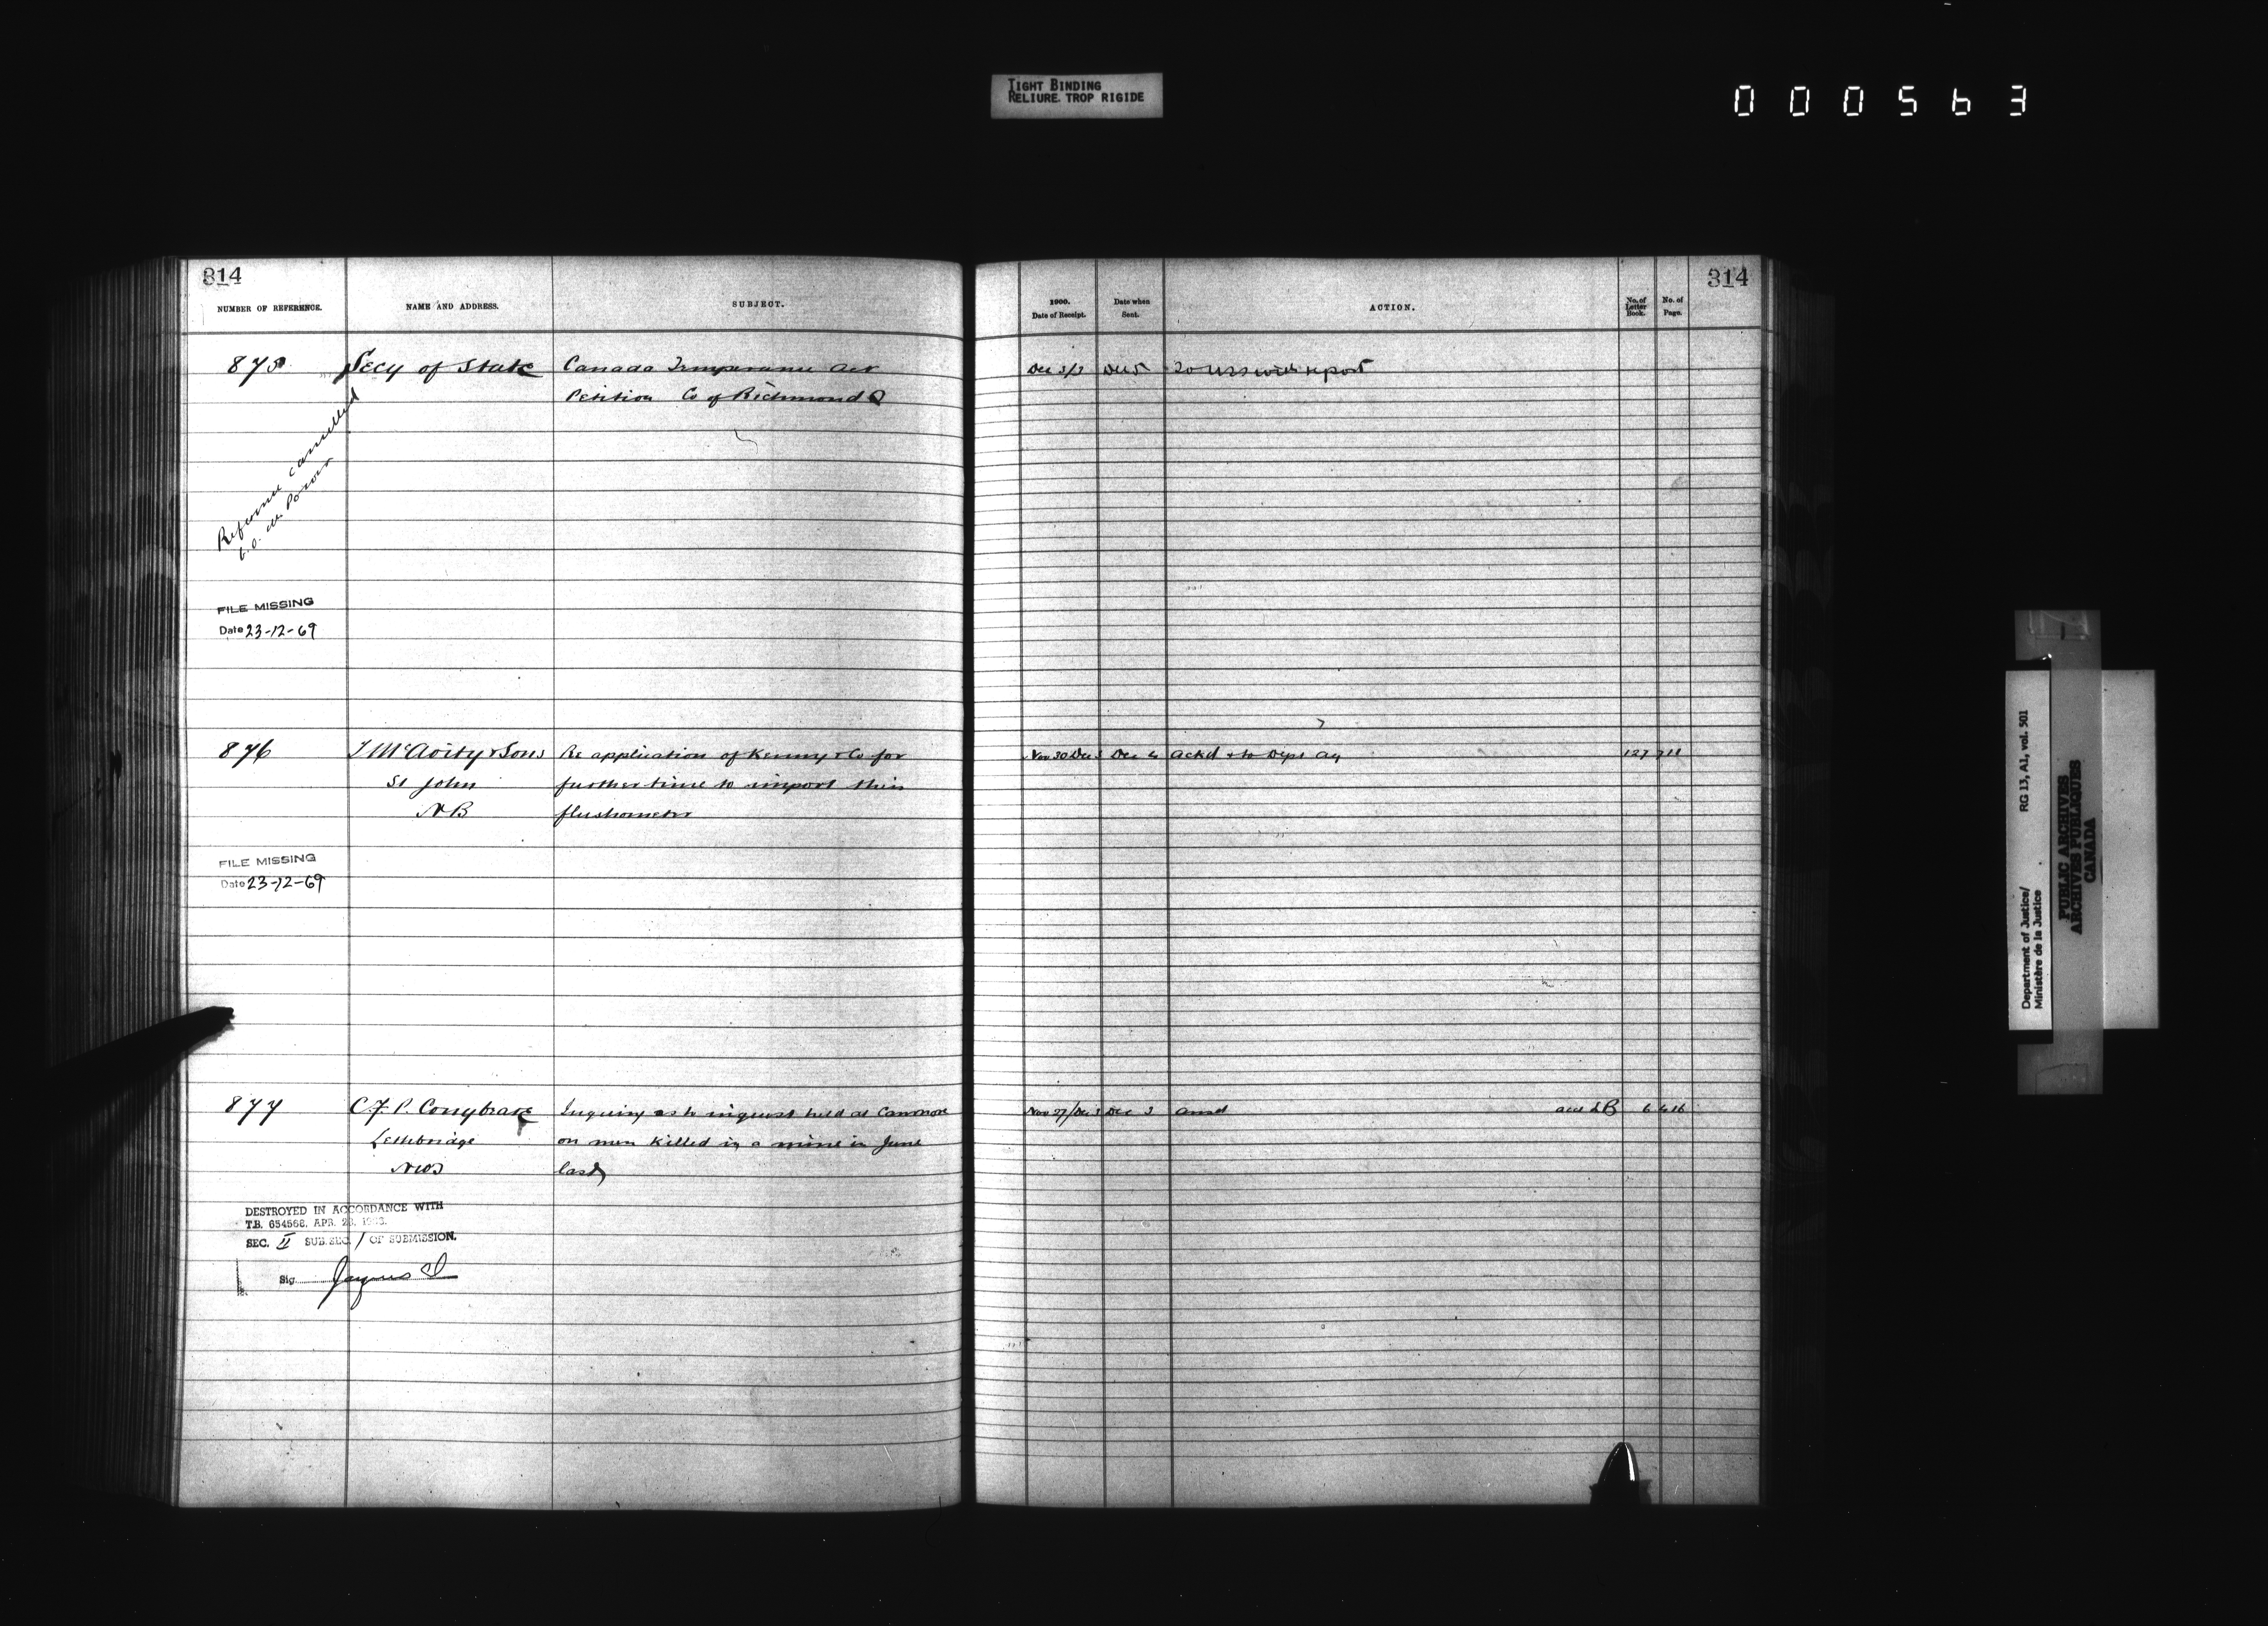 TIGHT BINDING
RELIURE TROP RIGIDE
000563
314
NUMBER OF REFERENCE.
NAME AND ADDRESS.
SUBJECT.
875
Secy of State
Canada Temperance Act
Petition Co of Richmond Q
Reference cancelled
FILE MISSING
Date 23-12-69
876
T McAvity & Sons
St John
NB
Re application of Kenny & Co for
further time to import their
flushometer
FILE MISSING
Date 23-12-69
877
C.F.P. Conybeare
Lethbridge
NWT
Inquiry as to inquest held at Canmore
on men killed in a mine in June
last
DESTROYED IN ACCORDANCE WITH
T.B. 654568, APR. 23,
SEC. II SUB.SEC. 1 OF SUBMISSION.
Sig.
314
1900.
Date of Receipt.
Date when
Sent.
ACTION.
No. of
Letter
Book.
No. of
Page.
Dec 3/3
Dec 5
To USS with report
Nov 30 Dec 3
Dec 4
ackd & to Dept Ag
127
Nov 27/Dec 3
Dec 3
ansd
6
Department of Justice/
Ministère de la Justice
RG 13, A1, vol. 501
PUBLIC ARCHIVES
ARCHIVES PUBLIQUES
CANADA